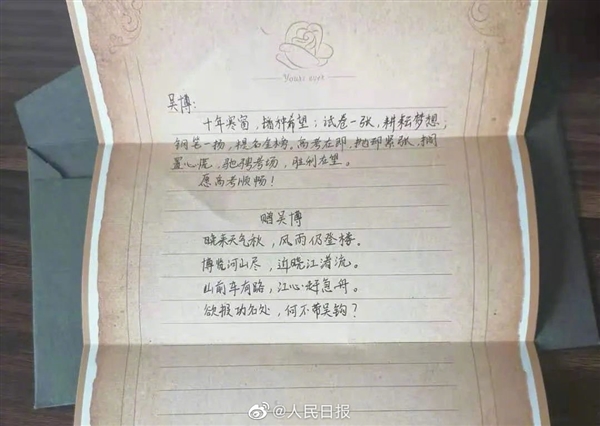 Yours ever
吴博:
十年寒窗,播种希望;试卷一张,耕耘梦想,
钢笔一扬,提名金榜,高考在即,抛却紧张,搁
置心慌,驰骋考场,胜利在望。
愿高考顺畅!
赠吴博
晚来天气秋,风雨仍登楼。
博览河山尽,近晓江渚流。
山前车有路,江心赶急舟。
欲报功名处,何不带吴钩?
@人民日报